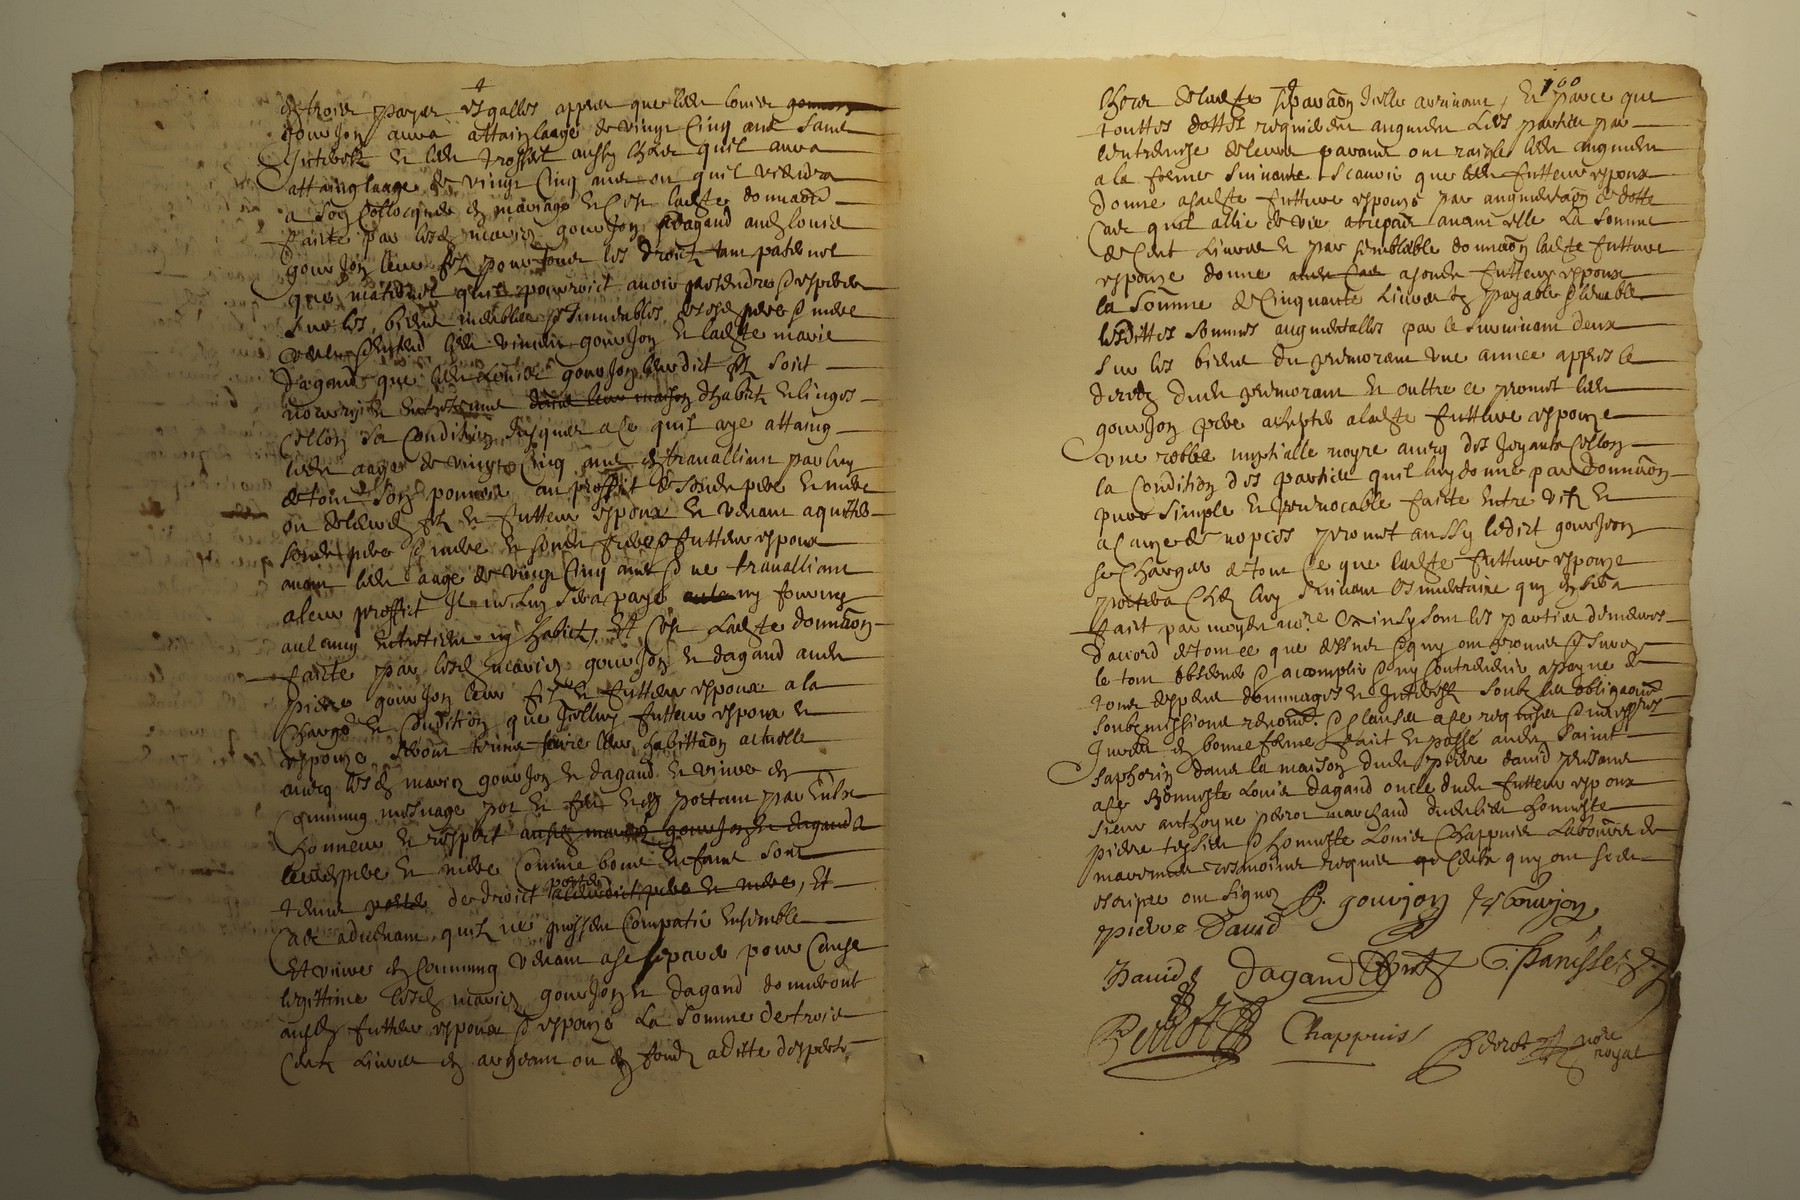 4
en trois payes esgalles appres que led louis
goujon aura attainct laage de vingt cinq ans sans
Interestz et led aussy lhors quil aura
attainct laage de vingt cinq ans ou quil viendra
a son collocquer en mariage et cest ladte donnaon
faicte par lesd mariez goujon dagand aud louis
goujon leur filz pour tous les droictz tant paternel
que maternel quil pourroict avoir pretendre & esperer
sur les biens meubles & Immeubles desd pere & mere
led goujon et ladte marie
dagand que led Louis goujon leurdict filz soict
nourry et entretenu dhabitz et linges
cellon sa condition jusques a ce quil aye attainct
led aage de vingt cinq ans en travalliant par luy
de tout son pouvoir au proffict de sond pere et mere
ou de leurd filz et futteur espoux et venant a quitter
sond pere & mere et sond frere & futteur espoux
avant led aage de vingt cinq ans & ne travalliant
a leur proffict Il ne luy sera paye ny fourny
aulcung entretien ny habitz, Et cest Ladte donnaon
faicte par lesd mariez goujon et dagand aud
pierre goujon leur filz et futteur espoux a la
charge et condition que Icelluy futteur espoux et
espouze seront tenus faire leur habittaon actuelle
avecq lesd mariez goujon et dagand et vivre en
commung mesnage pot et feu et en portant par eulx
honneur et respect ausd mariez goujon et dagand
leurs pere et mere comme bons enfans sont
tenus porter de droict a leurdict pere et mere, Et
cas advenant quilz ne puissent compatir Ensemble
Et vivre en commung venant a se separer pour cause
legittime lesd mariez goujon et dagand donneront
ausd futteur espoux & espouze La somme de trois
centz Livres en argeant ou en fondz a ditte desperts
100
lhors de ladte separaon Icelle arrivant, Et parce que
touttes dottes requierent augment Lesd parties par
lentremise de leurs parans ont raigle led augment
a la forme suivante scavoir que led futteur espoux
donne a ladte futture espouze par augmentaon de dotte
cas quil allie de vie a trepas avant elle La somme
de cent Livres et par semblable donnaon ladte futture
espouze donne a sond futteur espoux
la somme de cinquante Livres tz payable & levable
lesdittes sommes augmentalles par le survivant deux
sur les biens du premorant une annee appres le
deces dud premorant et outtre ce promet led
goujon pere achepter a ladte futture espouze
une robbe nuptialle noyre avecq des joyaulx cellon
la condition des parties quil luy donne par donnaon
pure simple et Irrevocable faicte entre vifz et
a cauze de nopces promet aussy ledict goujon
se charger de tout ce que ladte futture espouze
portera chez luy suivant Linventaire quy en sera
faict par moyd nore Et ainsy sont les parties demeures
daccord de tout ce que dessus & quy ont promis & jure
le tout observer & accomplir & ny contrevenir a payne de
tous despens dommages et Interestz soubz les obligaons
soubzmissions renons & clauses a ce requises & necessres
Jurees en bonne forme faict et passé aud saint
saphorin dans la maison dud pierre david presans
a ce honneste Louis dagand oncle dud futteur espoux
sieur anthoyne perrot marchand dud lieu honneste
pierre & honneste Louis Chappuis Laboureur de
tesmoins requis & ceux quy ont sceu
escripre ont signez P. goujon goujon
pierre David
David dagand
Perrot Chappuis nore
royal